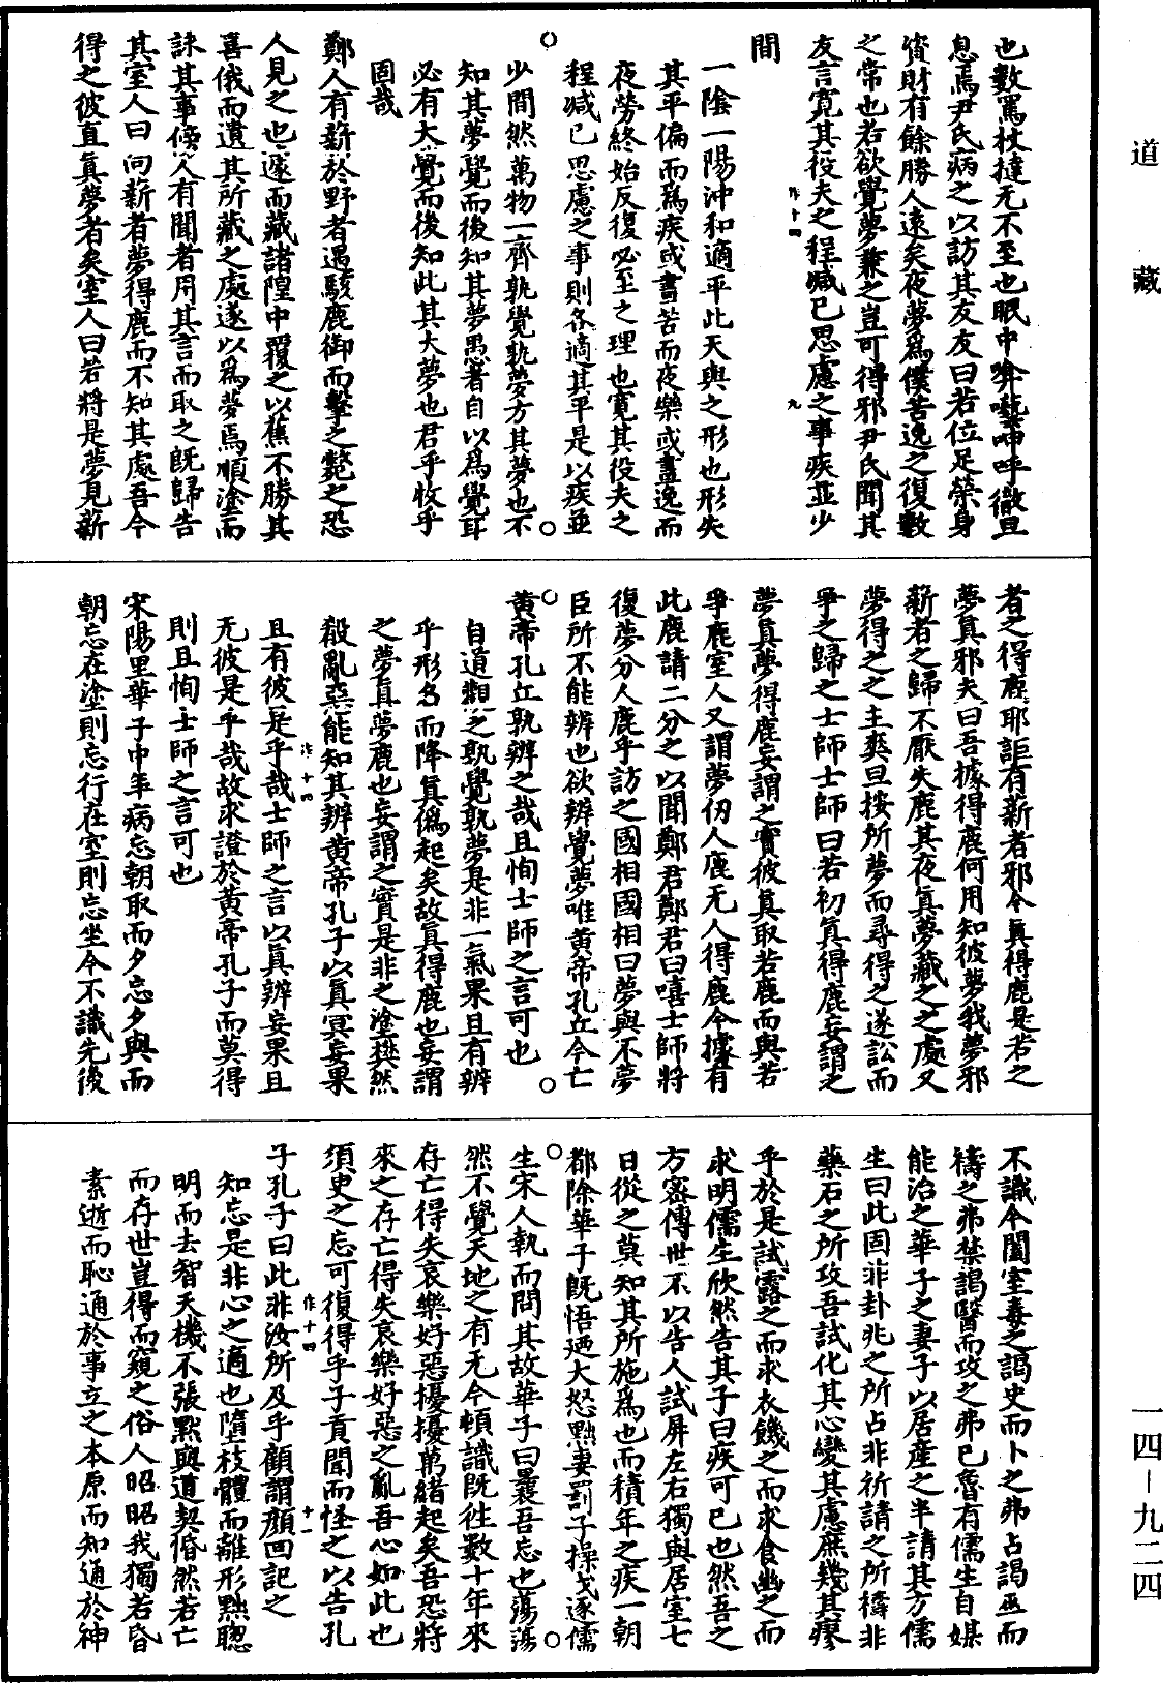 也數罵杖撻无不至也眠中啽囈呻呼徹旦
息焉尹氏病之以訪其友友曰若位足榮身
資財有餘勝人遠矣夜夢爲僕苦逸之復數
之常也若欲覺夢兼之豈可得邪尹氏聞其
友言寬其役夫之程減已思慮之事疾並少
作十四
九
間
一陰一陽沖和適平此天與之形也形失
其平偏而爲疾或晝苦而夜樂或晝逸而
夜勞終始反復必至之理也寬其役夫之
程減已思慮之事則各適其平是以疾並
少間然萬物一齊孰覺孰夢方其夢也不
知其夢覺而後知其夢愚者自以爲覺耳
必有大覺而後知此其大夢也君乎牧乎
固哉
鄭人有薪於野者遇駭鹿御而擊之斃之恐
人見之也遽而藏諸隍中覆之以蕉不勝其
喜俄而遺其所藏之處遂以爲夢焉順塗而
詠其事傍人有聞者用其言而取之旣歸告
其室人曰向薪者夢得鹿而不知其處吾今
得之彼直眞夢者矣室人曰若將是夢見薪
者之得鹿耶詎有薪者邪今眞得鹿是若之
夢眞邪夫曰吾據得鹿何用知彼夢我夢邪
薪者之歸不厭失鹿其夜眞夢藏之之處又
夢得之之主爽旦按所夢而尋得之遂訟而
爭之歸之士師士師曰若初眞得鹿妄謂之
夢眞夢得鹿妄謂之實彼眞取若鹿而與若
爭鹿室人又謂夢仞人鹿无人得鹿今據有
此鹿請二分之以聞鄭君鄭君曰嘻士師將
復夢分人鹿乎訪之國相國相曰夢與不夢
臣所不能辨也欲辨覺夢唯黃帝孔丘今亡
黃帝孔丘孰辨之哉且恂士師之言可也
自道觀之孰覺孰夢是非一氣果且有辨
乎形名而降眞僞起矣故眞得鹿也妄謂
之夢眞夢鹿也妄謂之實是非之塗樊然
殽亂惡能知其辨黃帝孔子以眞冥妄果
作十四
且有彼是乎哉士師之言以眞辨妄果且
无彼是乎哉故求證於黃帝孔子而莫得
則且恂士師之言可也
宋陽里華子中年病忘朝取而夕忘夕與而
朝忘在塗則忘行在室則忘坐今不識先後
不識今闔室毒之謁史而卜之弗占謁巫而
禱之弗禁謁醫而攻之弗已魯有儒生自媒
能治之華子之妻子以居產之半請其方儒
生曰此固非卦兆之所占非祈請之所禱非
藥石之所攻吾試化其心變其慮庶幾其瘳
乎於是試露之而求衣饑之而求食幽之而
求明儒生欣然告其子曰疾可已也然吾之
方密傳世不以告人試屏左右獨與居室七
日從之莫知其所施爲也而積年之疾一朝
都除華子旣悟迺大怒黜妻罰子操戈逐儒
生宋人執而問其故華子曰曩吾忘也蕩蕩
然不覺天地之有无今頓識旣往數十年來
存亡得失哀樂好惡擾擾萬緒起矣吾恐將
來之存亡得失哀樂好惡之亂吾心如此也
須臾之忘可復得乎子貢聞而怪之以告孔
作十四
十一
子孔子曰此非汝所及乎顧謂顏回記之
知忘是非心之適也墮枝體而離形黜聰
明而去智天機不張默與道契惛然若亡
而存世豈得而窺之俗人昭昭我獨若昏
素逝而恥通於事立之本原而知通於神
道藏
一四－九二四